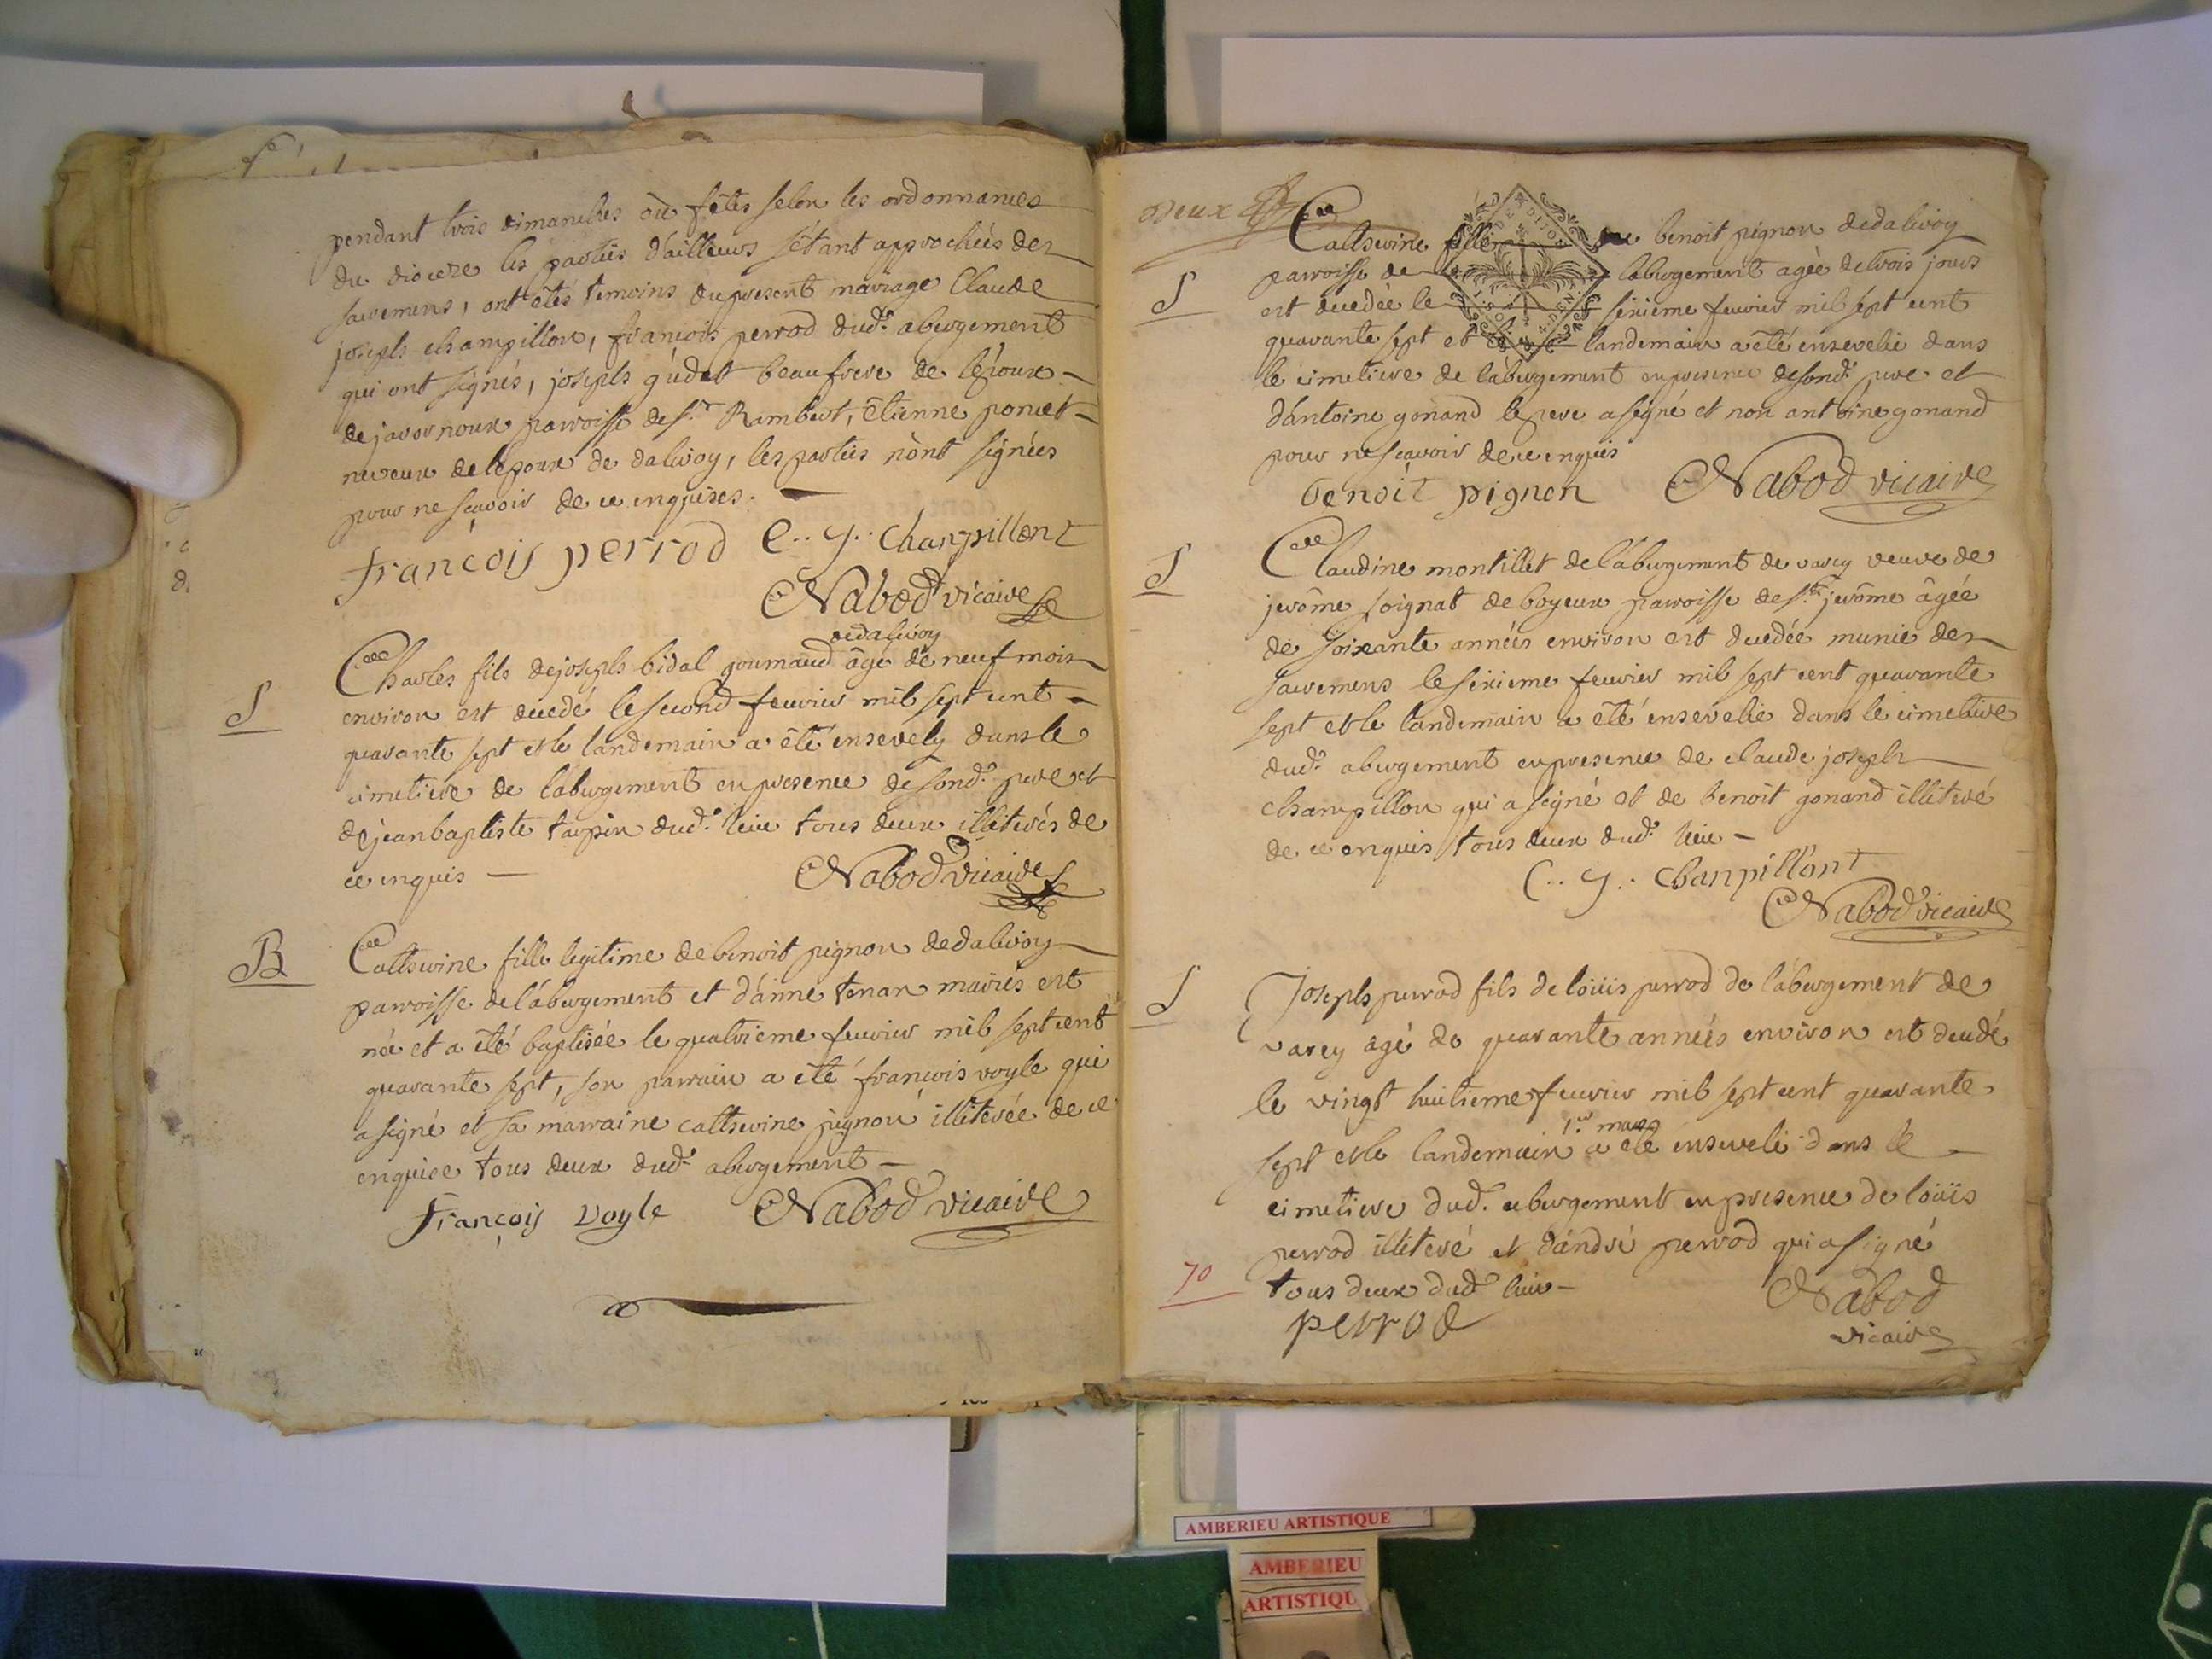 pendant trois dimanches où fêtes selon les ordonnances
du diocese les parties d'ailleurs s'étant approchées des
sacremens, ont êtés temoins du present mariage Claude
joseph champillon, francois perrod dud.^t abergement
qui ont signés, joseph gudet beaufrere de l'époux
de javornoux parroisse de s.^t Rambert, êtienne poncet
neveux de lepoux de dalivoy, les parties n'ont signées
pour ne scavoir de ce enquises.
françois perrod C.. j.. champillont
Nabod vicaire
dedalivoy
Charles fils de joseph bidal gourmand âgé de neuf mois
environ est decedé le second fevrier mil sept cent
quarante sept et le landemain a êté ensevely dans le
cimetiere de l'abergement en presence de sond.^t pere et
de jean baptiste tarpin dud.^t lieu tous deux illiterés de
ce enquis
Nabod vicaire
S
B
Catherine fille legitime de benoit pignon dedalivoy
parroisse de l'abergement et d'anne tenan mariés est
née et a êté baptisée le quatrieme fevrier mil sept cent
quarante sept, son parrain a êté francois voyle qui
a signé et sa marraine catherine pignon illiterée de ce
enquise tous deux dud.^t abergement
françois voyle Nabod vicaire
deux
Catherine fille de benoit pignon dedalivoy
parroisse de labergement agée de trois jours
S
est decedée le sixieme fevrier mil sept cent
quarante sept et le landemain a êté ensevelie dans
le cimetiere de l'abergement en presence de sond.^t pere et
d'antoine gonand le pere a signé et non antoine gonand
pour ne scavoir de ce enquis
benoit pignon Nabod vicaire
S
Claudine montillet de l'abergement de varey veuve de
jerôme soignat de boyeux parroisse de s.^t jerôme âgée
de soixante années environ est decedée munie des
sacremens le sixieme fevrier mil sept cent quarante
sept et le landemain a êté ensevelie dans le cimetiere
dud.^t abergement en presence de claude joseph
champillon qui a signé et de benoit gonand illiteré
de ce enquis tous deux dud.^t lieu
C.. j.. chanpillont
Nabod vicaire
S
Joseph perrod fils de loüis perrod de l'abergement de
varey agé de quarante années environ est decedé
le vingt huitieme fevrier mil sept cent quarante
1.^er mars
sept et le landemain a eté enseveli dans le
cimetiere dud.^t abergement en presence de loüis
perrod illiteré et d'andré perrod qui a signé
70
tous deux dud.^t lieu
perrod
Nabod
vicaire
AMBERIEU ARTISTIQUE
AMBERIEU
ARTISTIQU